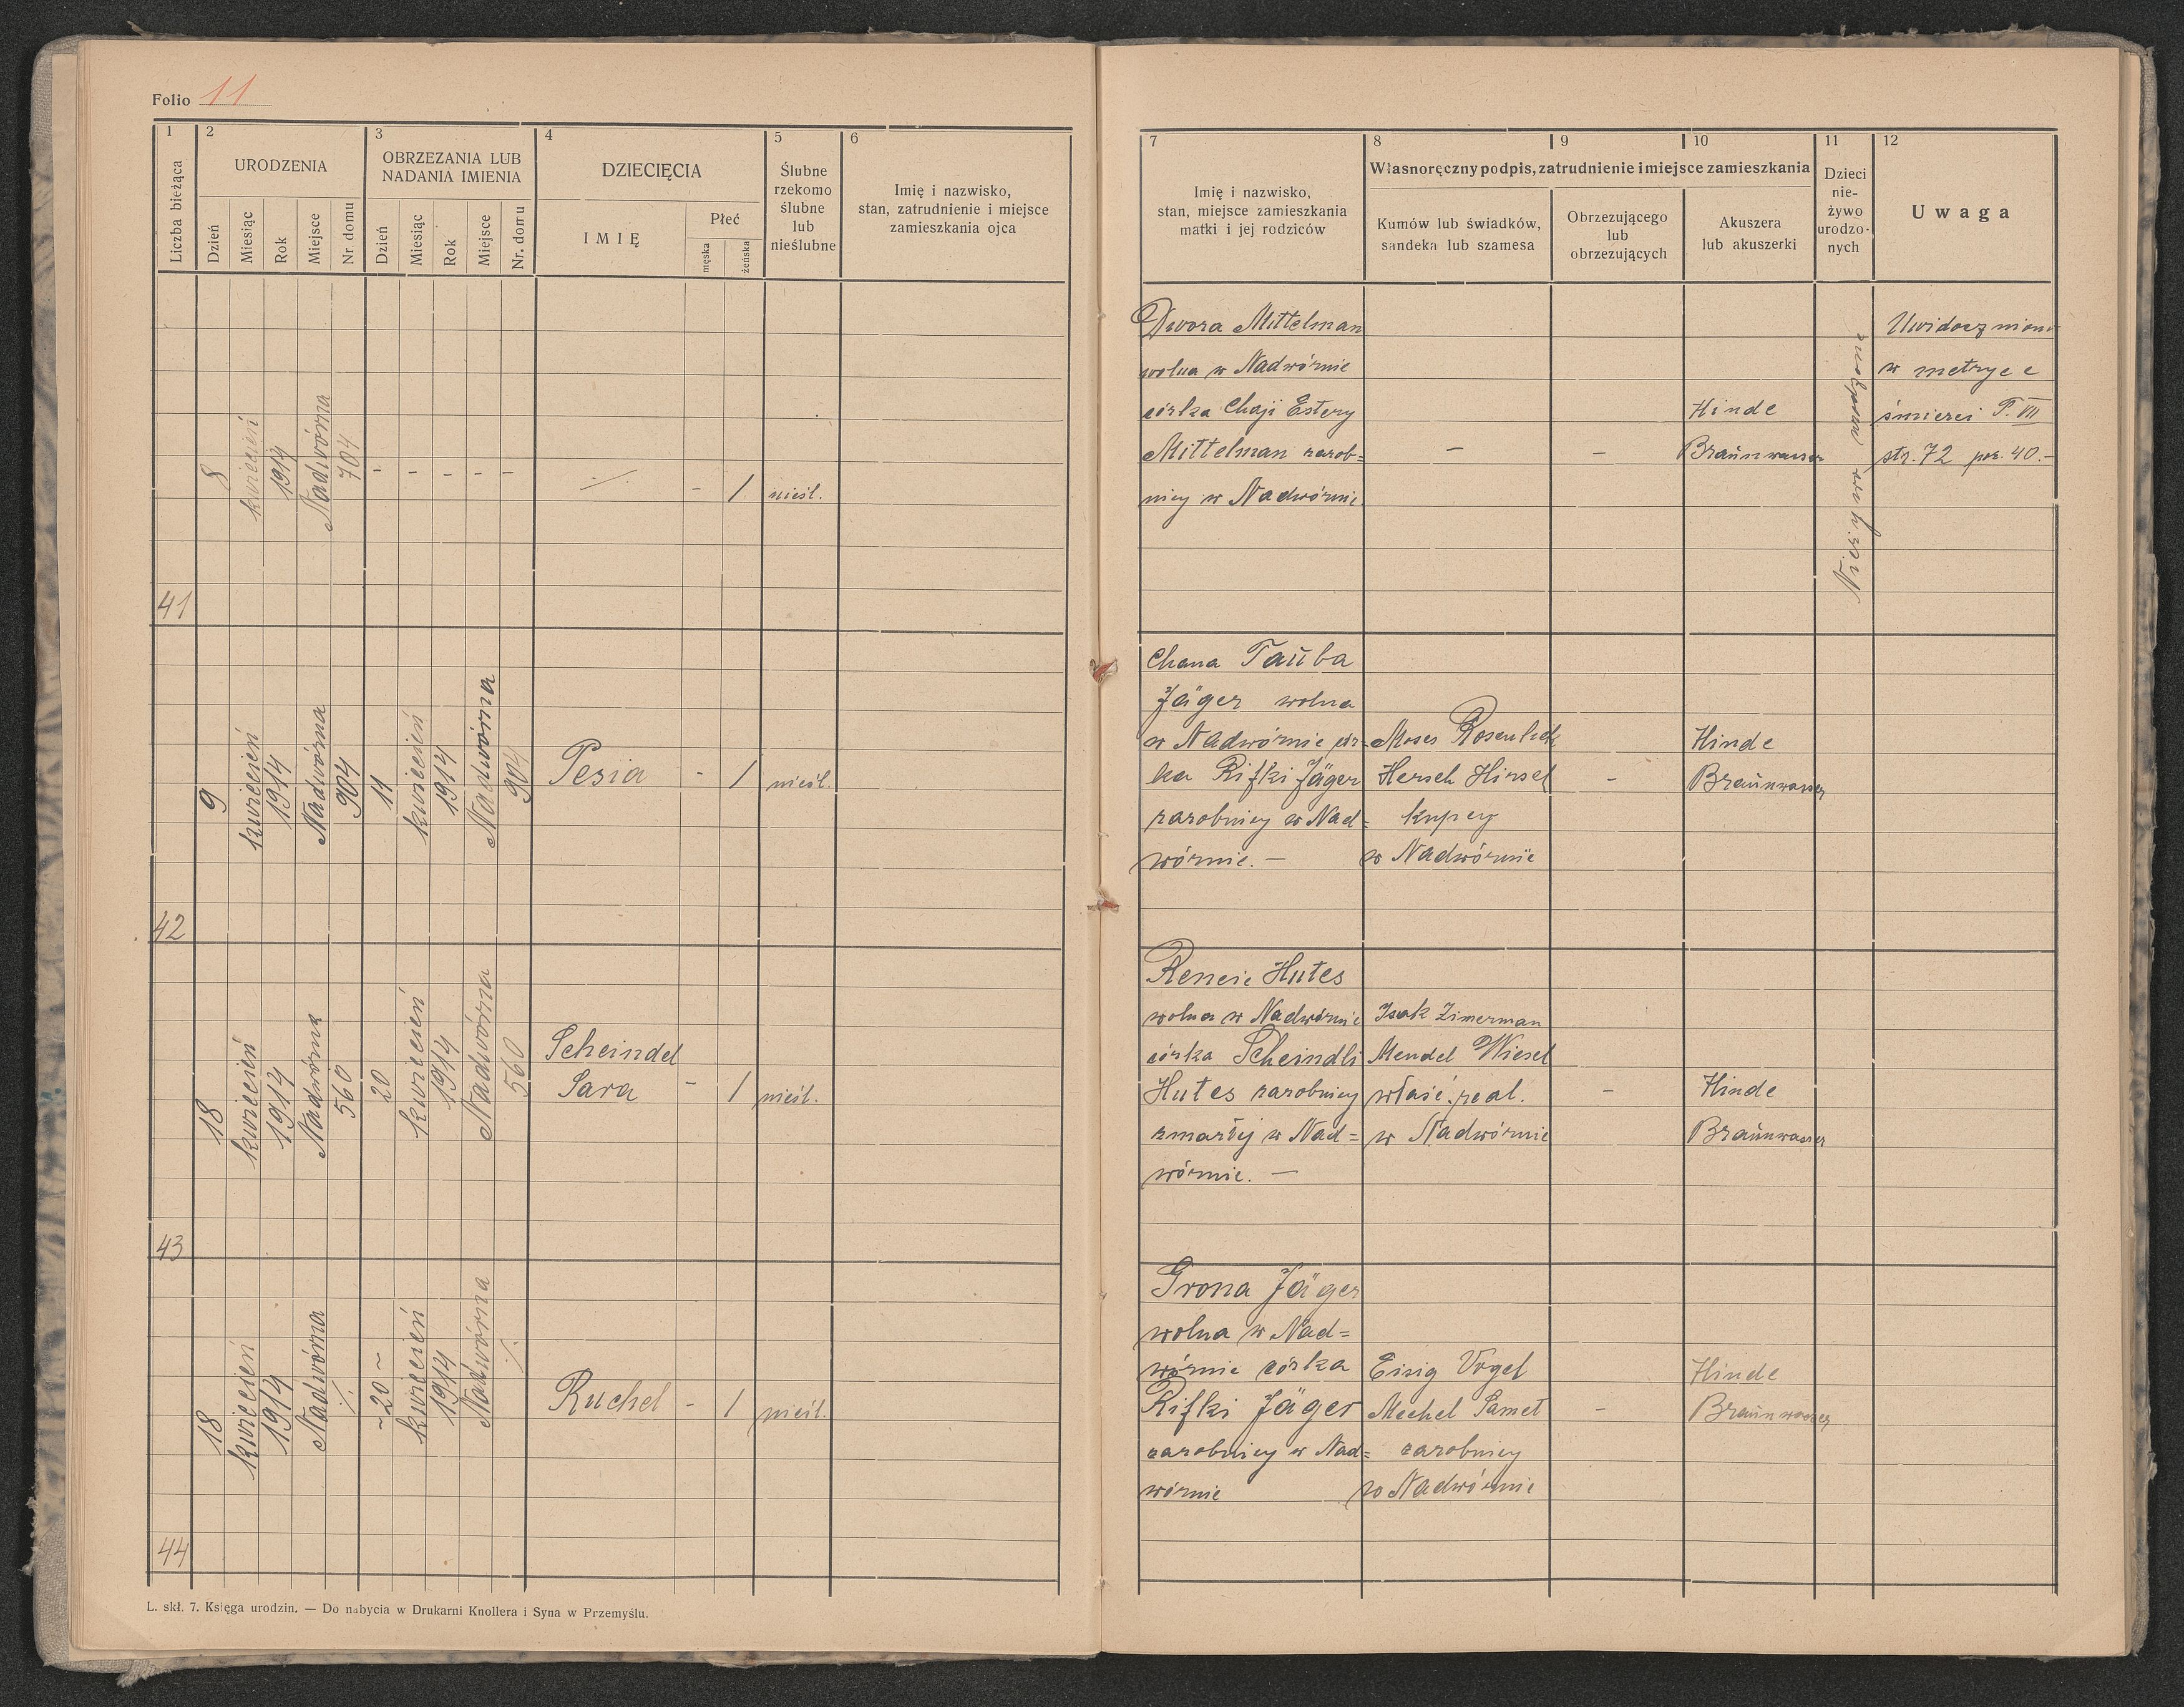 Folio 11
1 2 3 4 5 6
Liczba bieżąca
URODZENIA
OBRZEZANIA LUB
NADANIA IMIENIA
DZIECIĘCIA
Ślubne
rzekomo
ślubne
lub
nieślubne
Imię i nazwisko,
stan, zatrudnienie i miejsce
zamieszkania ojca
Dzień Miesiąc Rok Miejsce Nr. domu
Dzień Miesiąc Rok Miejsce Nr. domu
IMIĘ
Płeć
męska żeńska
8 kwiecień 1914 Nadwórna 704 - - - - - - 1 nieśl.
41
9 kwiecień 1914 Nadwórna 904 11 kwiecień 1914 Nadwórna 904 Pesia - 1 nieśl.
42
Scheindel
18 kwiecień 1914 Nadwórna 560 20 kwiecień 1914 Nadwórna 560 Sara - 1 nieśl.
43
18 kwiecień 1914 Nadwórna ·/· ~20~ kwiecień 1914 Nadwórna ·/· Ruchel - 1 nieśl.
44
L. skł. 7. Księga urodzin. — Do nabycia w Drukarni Knollera i Syna w Przemyślu.
7 8 9 10 11 12
Imię i nazwisko,
stan, miejsce zamieszkania
matki i jej rodziców
Własnoręczny podpis, zatrudnienie i miejsce zamieszkania
Kumów lub świadków,
sandeka lub szamesa
Obrzezującego
lub
obrzezujących
Akuszera
lub akuszerki
Dzieci
nie-
żywo
urodzo-
nych
Uwaga
Dwora Mittelman
wolna w Nadwórnie
córka Chaji Estery
Mittelman zarob=
nicy w Nadwórnie.
-
-
Hinde
Braünwasser
Nieżywo urodzone
Uwidoczniono
w metryce
śmierci T. VII
str. 72 poz. 40.-
Chana Taüba
Jäger wolna
w Nadwórnie cór-
ka Rifki Jäger
zarobnicy w Nad=
wórnie. —
Moses
Hersch Hirsel
kupcy
w Nadwórnie
-
Hinde
Braünwasser
Hutes
wolna w Nadwórnie
córka Scheindli
Hutes zarobnicy
zmarłej w Nad=
wórnie. —
Isak Zimerman
Mendel Wiesel
właść. real.
w Nadwórnie
-
Hinde
Braünwasser
Grona Jäger
wolna w Nad=
wórnie córka
Rifki Jäger
zarobnicy w Nad=
wórnie
Eisig Vogel
Mechel Samet
zarobnicy
w Nadwórnie
-
Hinde
Braünwasser